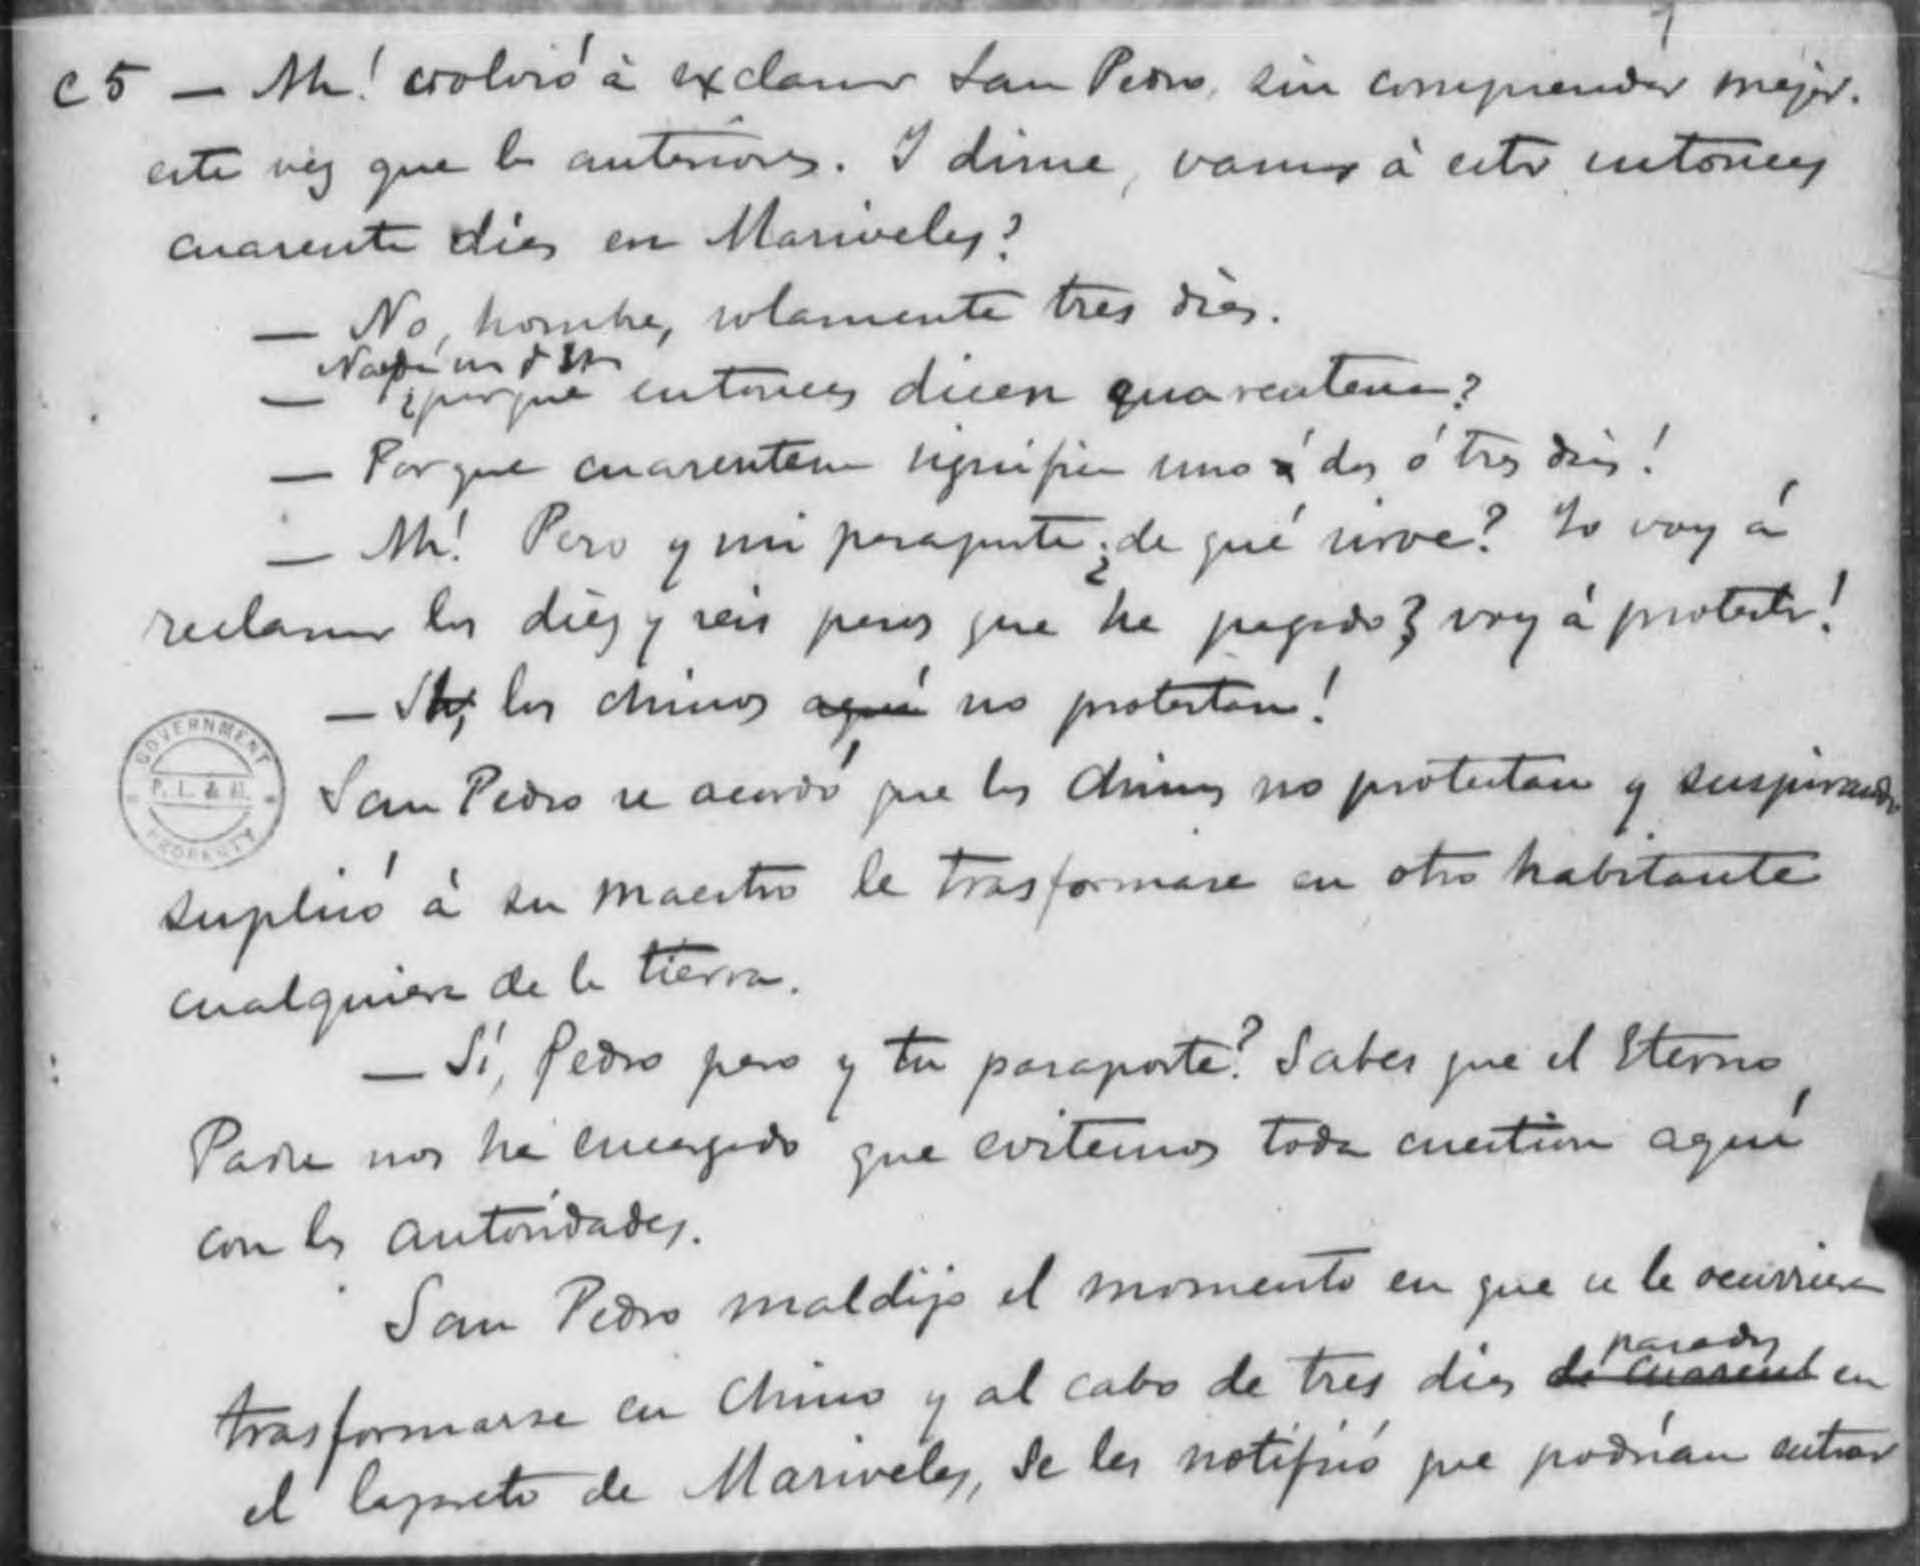 C5 — Ah! volvió á exclamar San Pedro, sin comprender mejor
esta vez que las anteriores. I dime, vamos á estar entonces
cuarenta dias en Mariveles?
— No, hombre, solamente tres dias.
— ¿porqué entonces dicen quarentena?
— Porque cuarentena significa uno ó dos ó tres dias!
— Ah! Pero y mi pasaporte ¿de qué sirve? Yo voy á
reclamar los diez y seis pesos que he pagado y voy á protestar!
— St, los chinos aquí no protestan!
GOVERNMENT
P. I. & M.
PROPERTY
San Pedro se acordó que los chinos no protestan y suspirando
suplicó á su maestro le trasformase en otro habitante
cualquiera de la tierra.
— Sí, Pedro pero y tu pasaporte? Sabes que el Eterno
Padre nos ha encargado que evitemos toda cuestion aquí
con las autoridades.
San Pedro maldijo el momento en que se le ocurriera
pasados
trasformarse en Chino y al cabo de tres dias de cuarent en
el lazareto de Mariveles, se les notificó que podrían entrar